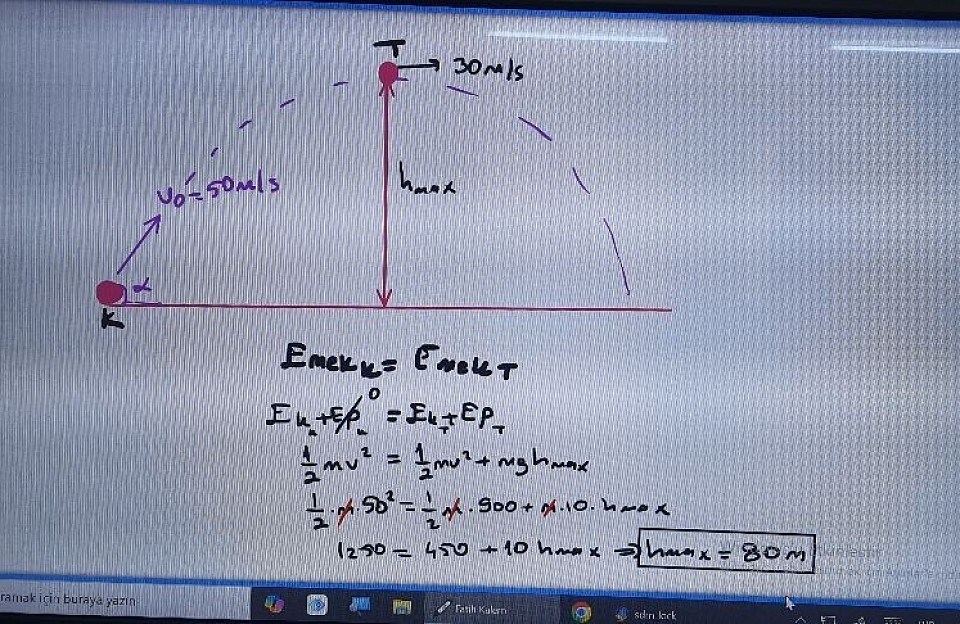 T
30 m/s
v₀ = 50 m/s
hmax
α
K
Emek K = Emek T
EkK + EpK⁰ = EkT + EpT
1/2 mv² = 1/2 mv² + mghmax
1/2 · m · 50² = 1/2 m · 900 + m · 10 · hmax
1250 = 450 + 10 hmax ⇒ hmax = 80 m
ramak için buraya yazın
Fatih Kalem